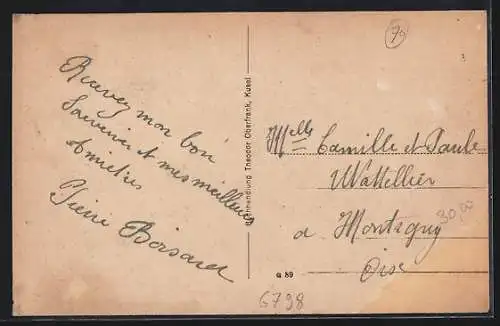 Recevez mon bon
Souvenir et mes meilleures
Amitiés
Pierre Boisard
Buchhandlung Theodor Oberfrank, Kusel
70
Melle Camille et Paule
Wattellier
a Montigny
Oise
30,00
G 89
6798